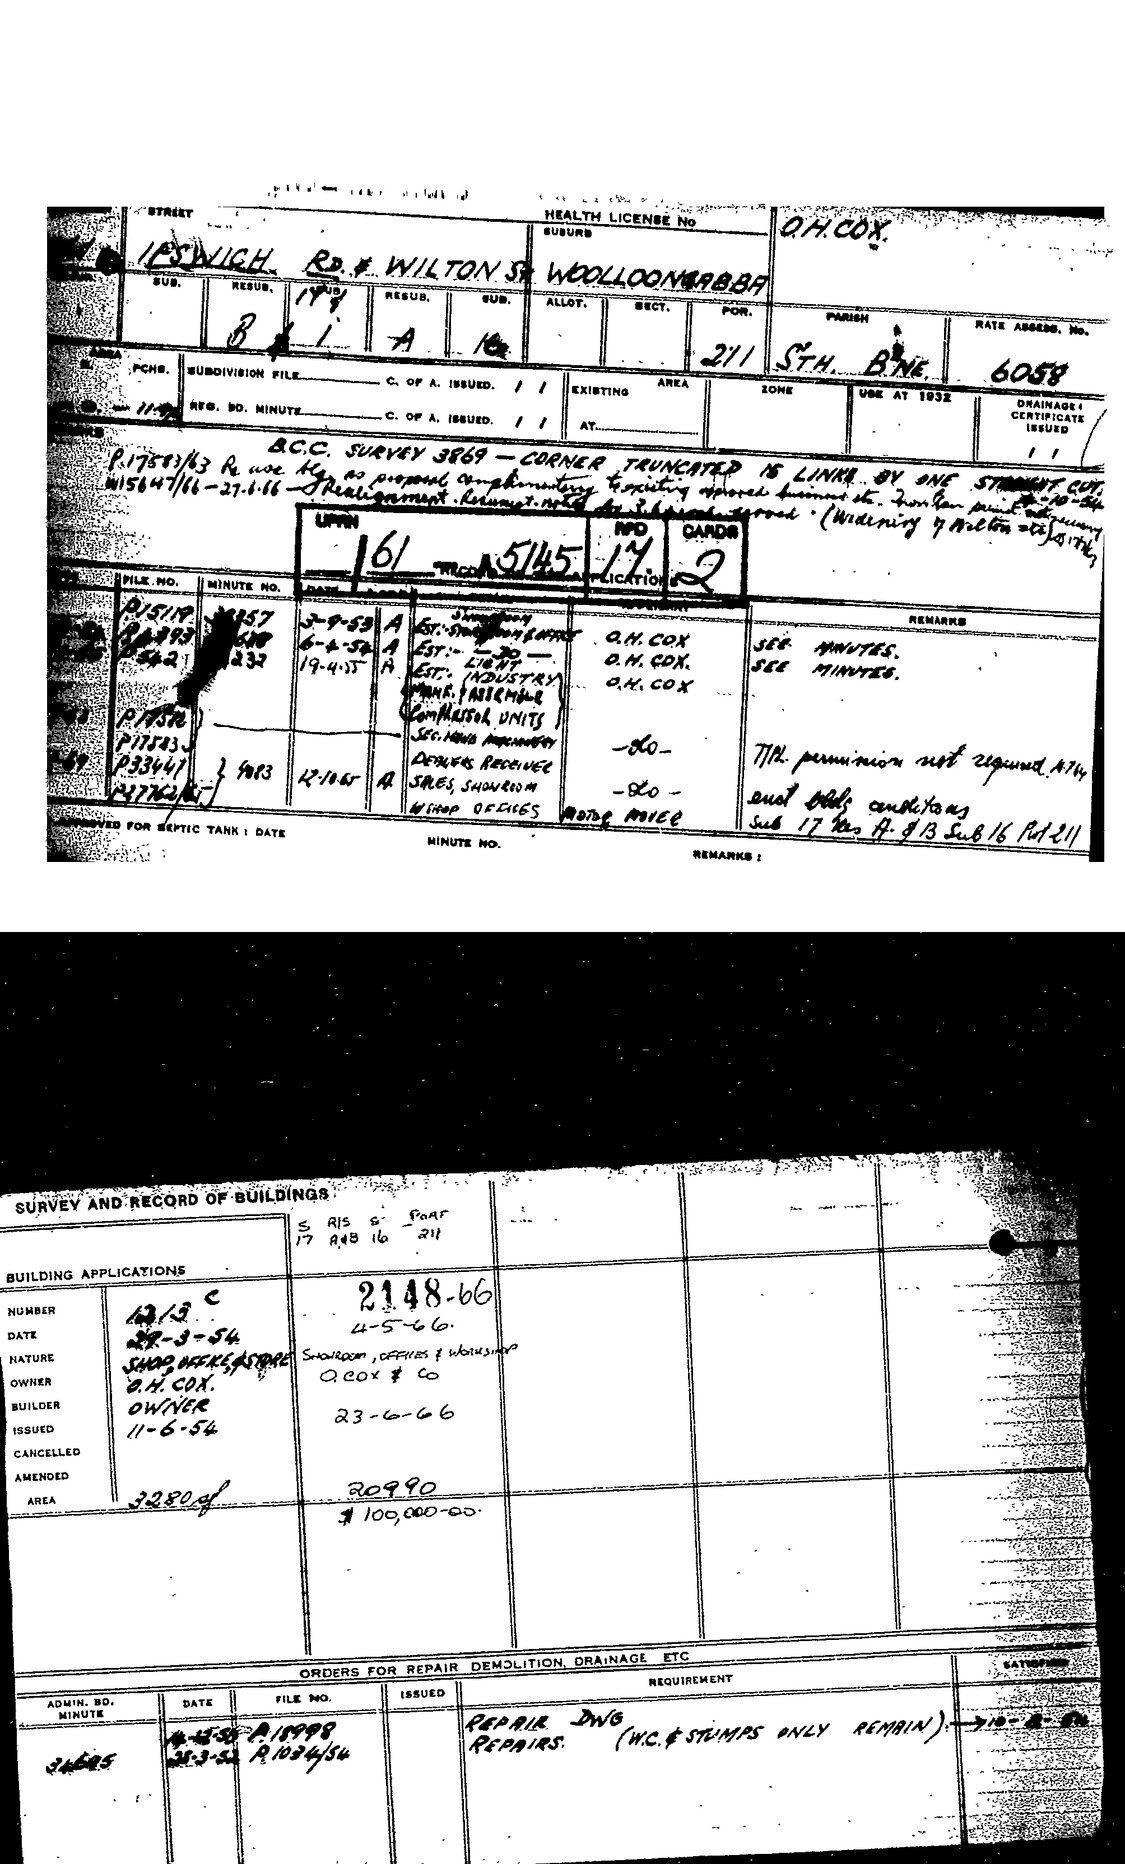 STREET
HEALTH LICENSE No
O.H.COX.
SUBURB
IPSWICH RD. & WILTON St WOOLLOONGABBA
SUB. RESUB. SUB. RESUB. SUB. ALLOT. SECT. POR. PARISH RATE ASSESS. No.
17 &
B & 1 A 16 211 STH. B'NE. 6058
AREA
PCHS. SUBDIVISION FILE C. OF A. ISSUED. / / EXISTING AREA ZONE USE AT 1932 DRAINAGE: CERTIFICATE ISSUED
REG. BD. MINUTE C. OF A. ISSUED. / / AT / /
B.C.C. SURVEY 3869 — CORNER TRUNCATED 15 LINKS BY ONE STRAIGHT CUT.
P.17583/63 Re use bldg as proposed complimentary to existing approved business etc.
27.6.66 — Realignment. Resumpt. (Widening of Wilton St)
UPRN RPD CARDS
/61 A5145 17. 2
APPLICATION
FILE NO. MINUTE NO. DATE REMARKS
P15119 3-9-53 A EST:- SHOWROOM & OFFICE O.H. COX SEE MINUTES.
6-4-54 A EST:- — DO — O.H. COX. SEE MINUTES.
232 19-4-55 A EST:- LIGHT INDUSTRY O.H. COX
MANF. & ASSEMBLE
COMPRESSOR UNITS
P17582
P17583 SEC. HAND MACHINERY —do— T/Pl. permission not required
P33441 DEALERS RECEIVER
4083 12-10-65 A SALES, SHOWROOM —do— erect bldg conditions
P37762/65 W/SHOP OFFICES MOTOR MOWER Sub 17 Res A. & B Sub 16 Por 211
APPROVED FOR SEPTIC TANK: DATE MINUTE NO. REMARKS:
SURVEY AND RECORD OF BUILDINGS
S R/S S PORT
17 A&B 16 211
BUILDING APPLICATIONS
NUMBER 1213 C 2148-66
DATE 29-3-54 4-5-66.
NATURE SHOP, OFFICE, & STORE SHOWROOM, OFFICES & WORKSHOP
OWNER O.H. COX. O.COX & CO
BUILDER OWNER
ISSUED 11-6-54 23-6-66
CANCELLED
AMENDED
AREA 3280 sf 20990
$ 100,000-00.
ORDERS FOR REPAIR DEMOLITION, DRAINAGE ETC
ADMIN. BD. MINUTE DATE FILE NO. ISSUED REQUIREMENT SATISFIED
P.18998 REPAIR DWG
P.1034/54 REPAIRS. (W.C. & STUMPS ONLY REMAIN).